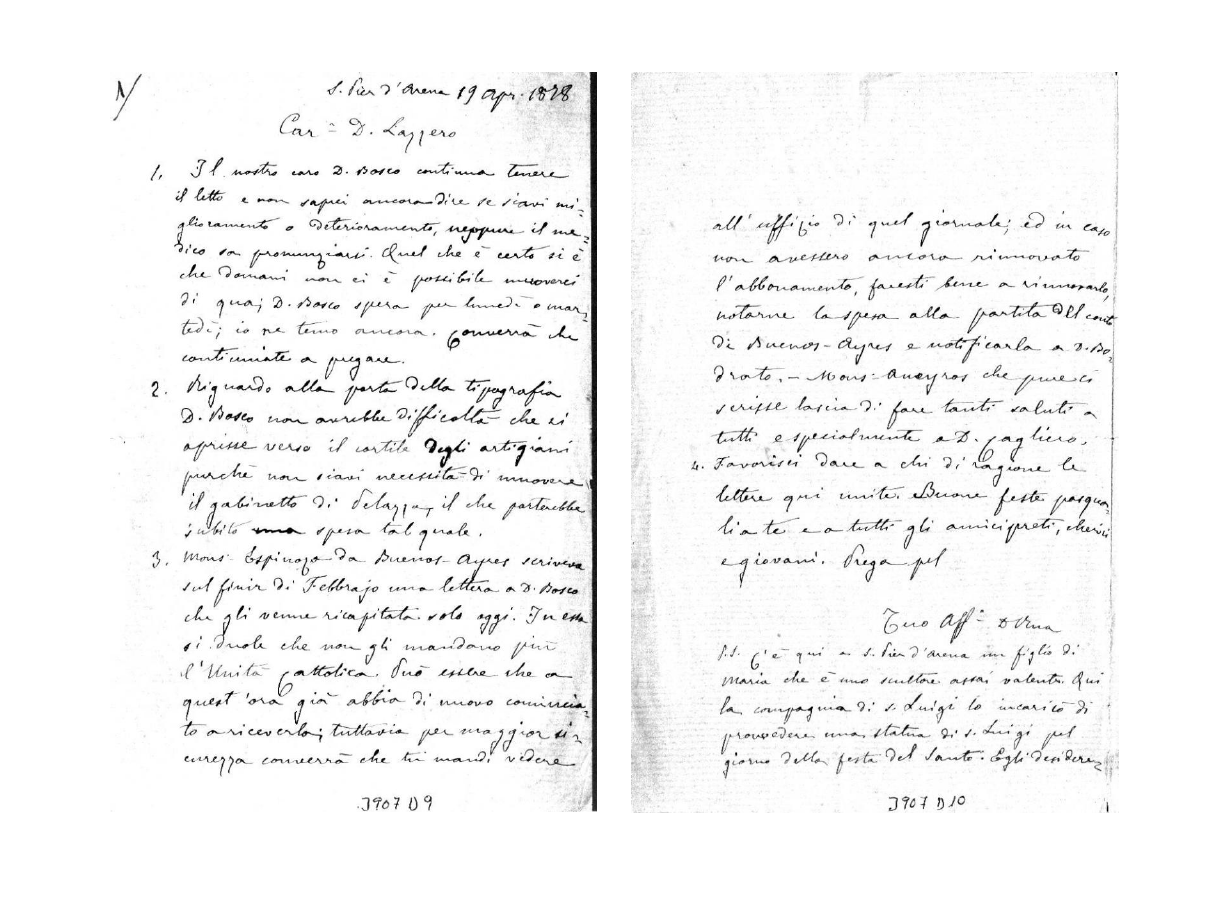 S. Pier d'Arena 19 Apr. 1878
Car.º D. Lazzero
1. Il nostro caro D. Bosco continua tenere
il letto e non saprei ancora dire se siavi mi=
glioramento o deterioramento, neppure il me=
dico sa pronunziarsi. Quel che è certo si è
che domani non ci è possibile muoverci
di qua; D. Bosco spera per lunedì o mar=
tedì; io ne temo ancora. Converrà che
continuiate a pregare.
2. Riguardo alla porta della tipografia
D. Bosco non avrebbe difficoltà che si
aprisse verso il cortile degli artigiani
purchè non siavi necessità di muovere
il gabinetto di Pelazza, il che porterebbe
subito una spesa tal quale.
3. Mons. Espinoza da Buenos-Ayres scriveva
sul finir di Febbrajo una lettera a D. Bosco
che gli venne ricapitata solo oggi. In essa
si duole che non gli mandano più
l'Unità Cattolica. Può essere che a
quest'ora già abbia di nuovo comincia=
to a riceverla; tuttavia per maggior si=
curezza converrà che tu mandi vedere
J907 D9
all'uffizio di quel giornale; ed in caso
non avessero ancora rinnovato
l'abbonamento, faresti bene a rinnovarlo,
notarne la spesa alla partita del conto
di Buenos-Ayres e notificarla a D. Bo=
drato. - Mons. Aneyros che pure ci
scrisse lascia di fare tanti saluti a
tutti e specialmente a D. Cagliero.
4. Favorisci dare a chi di ragione le
lettere qui unite. Buone feste pasqua=
li a te e a tutti gli amici preti, cherici
e giovani. Prega pel
Tuo Aff.º D Rua
P.S. C'è qui a S. Pier d'Arena un figlio di
Maria che è uno scultore assai valente. Qui
la compagnia di S. Luigi lo incaricò di
provvedere una statua di S. Luigi pel
giorno della festa del Santo. Egli desidere=
J907 D10